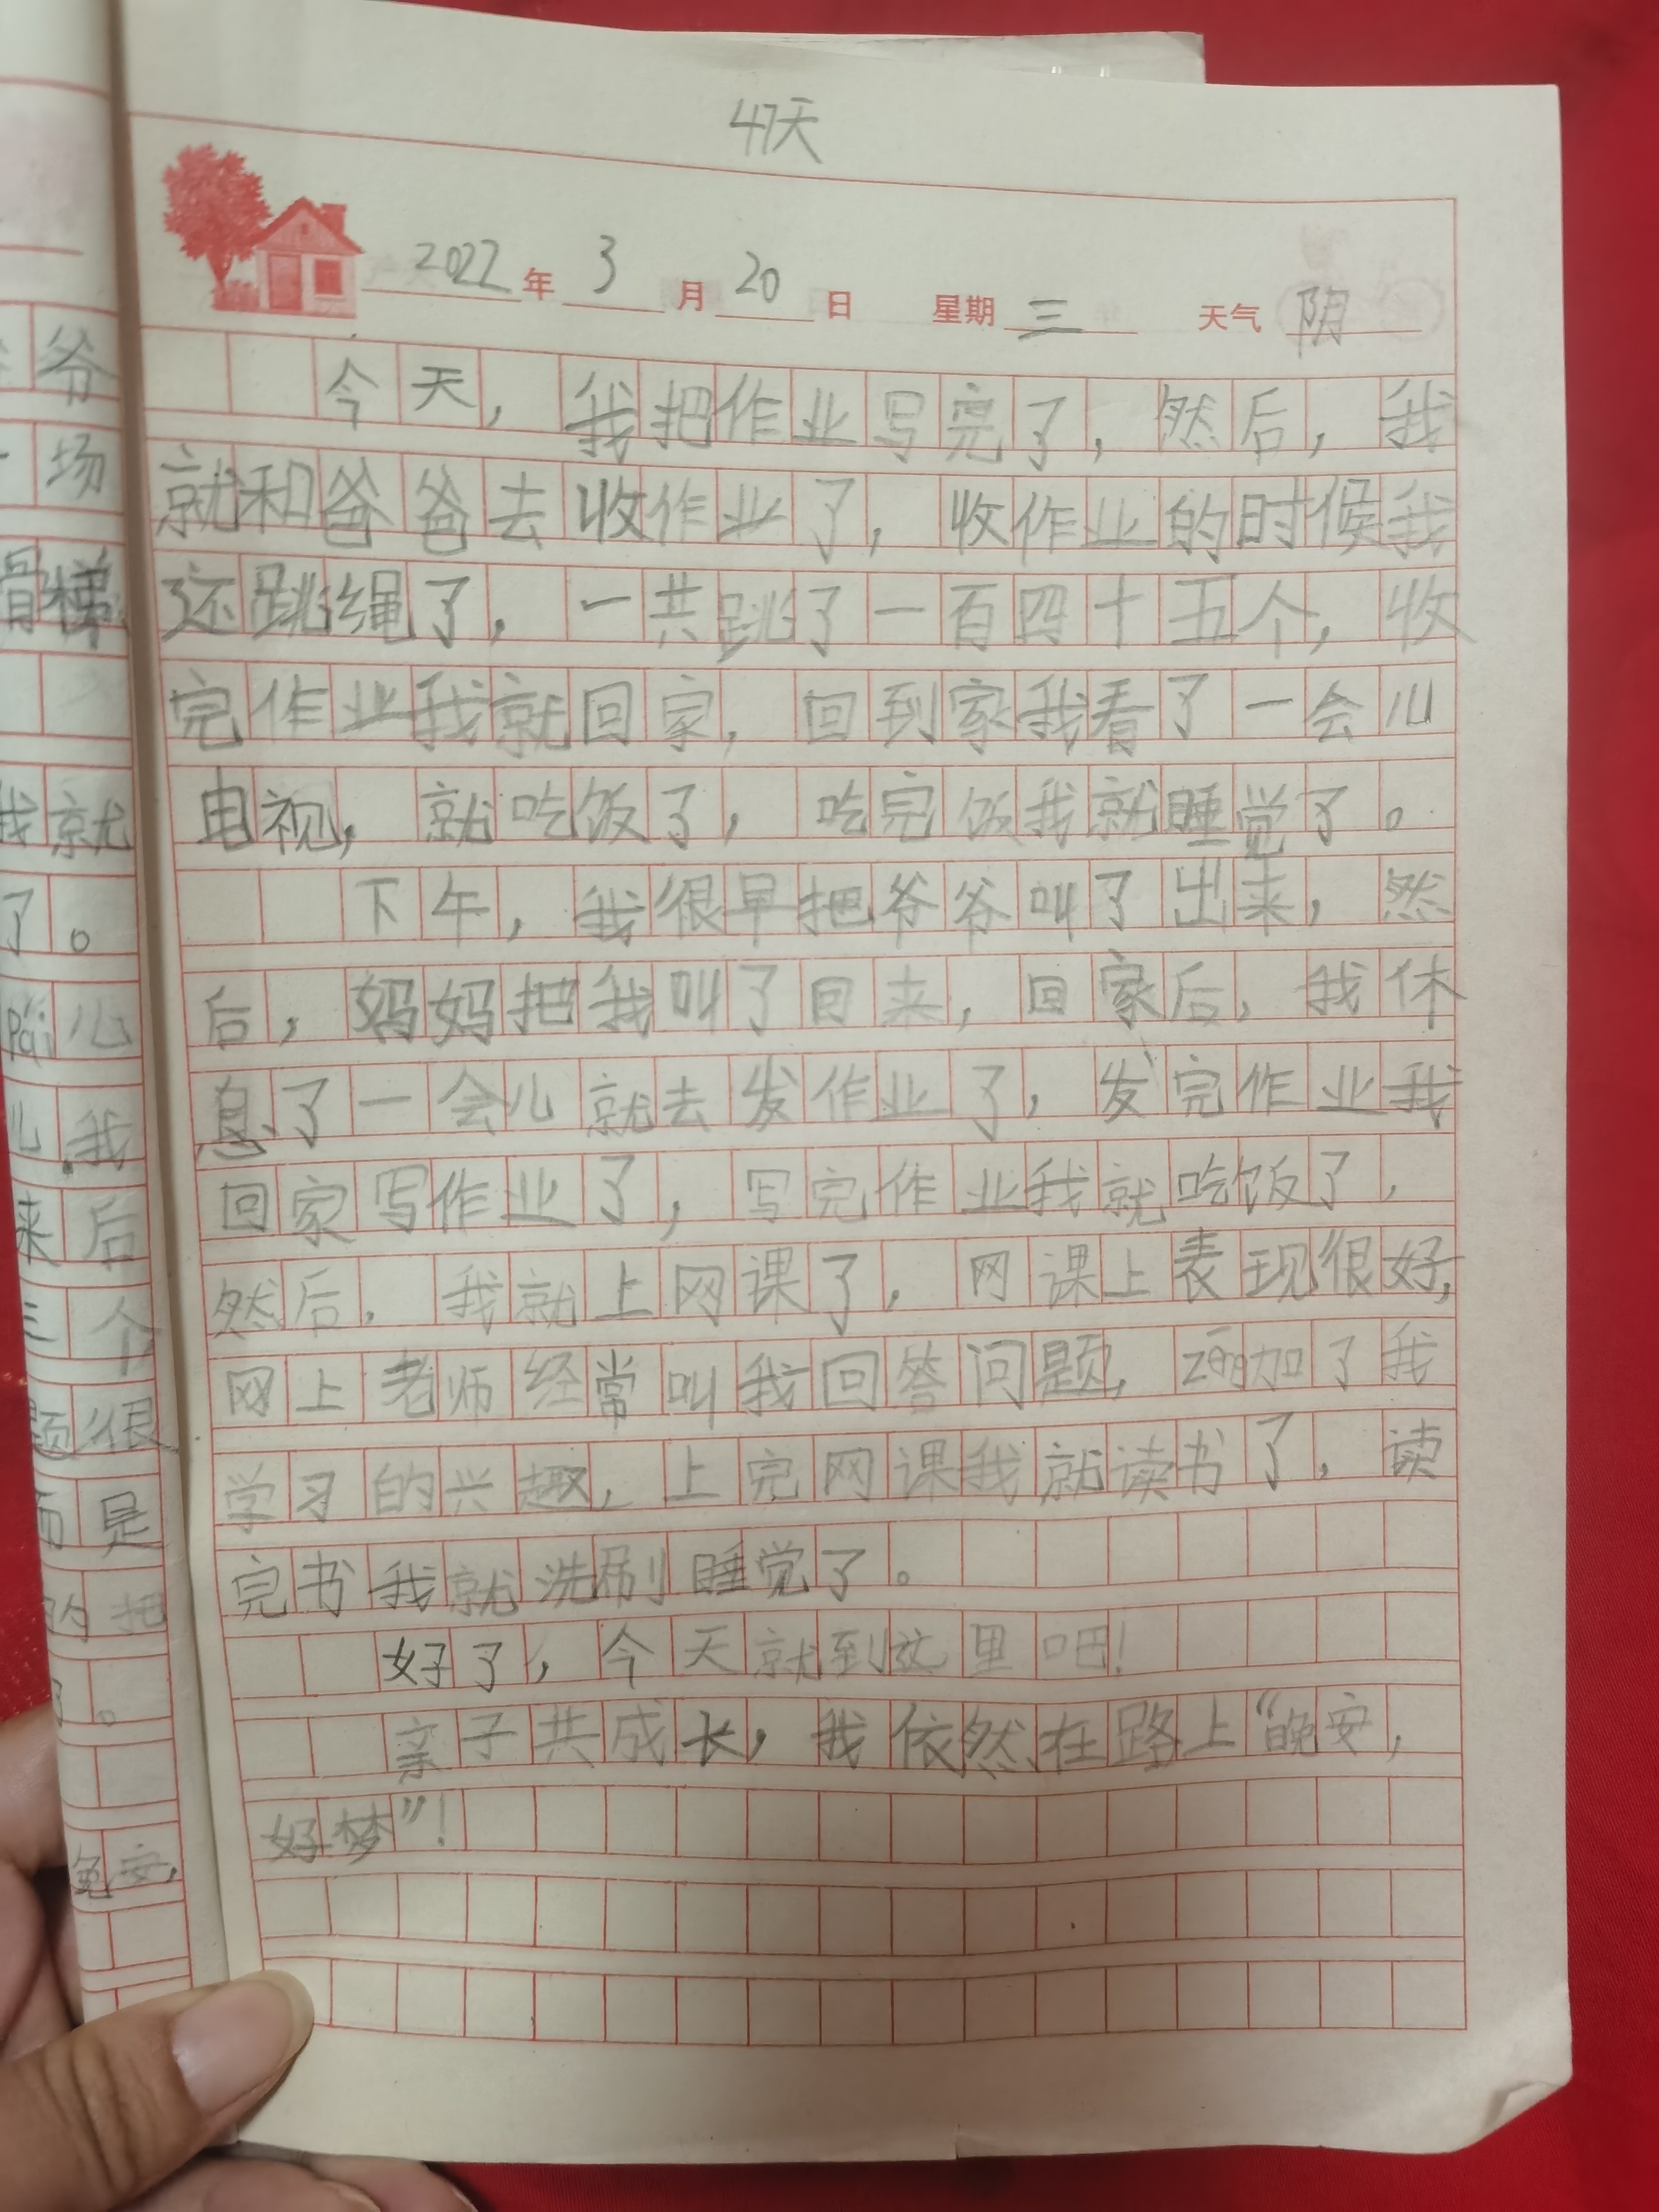 47天
2022年3月20日 星期三 天气阴
今天，我把作业写完了，然后，我
就和爸爸去收作业了，收作业的时候我
还跳绳了，一共跳了一百四十五个，收
完作业我就回家，回到家我看了一会儿
电视，就吃饭了，吃完饭我就睡觉了。
下午，我很早把爷爷叫了出来，然
后，妈妈把我叫了回来，回家后，我休
息了一会儿就去发作业了，发完作业我
回家写作业了，写完作业我就吃饭了，
然后，我就上网课了，网课上表现很好，
网上老师经常叫我回答问题，zēng加了我
学习的兴趣，上完网课我就读书了，读
完书我就洗刷睡觉了。
好了，今天就到这里吧！
亲子共成长，我依然在路上“晚安，
好梦”！
爷
场
滑梯
我就
了。
儿
儿，我
来后
三个
题很
而是
的把
了。
晚安，